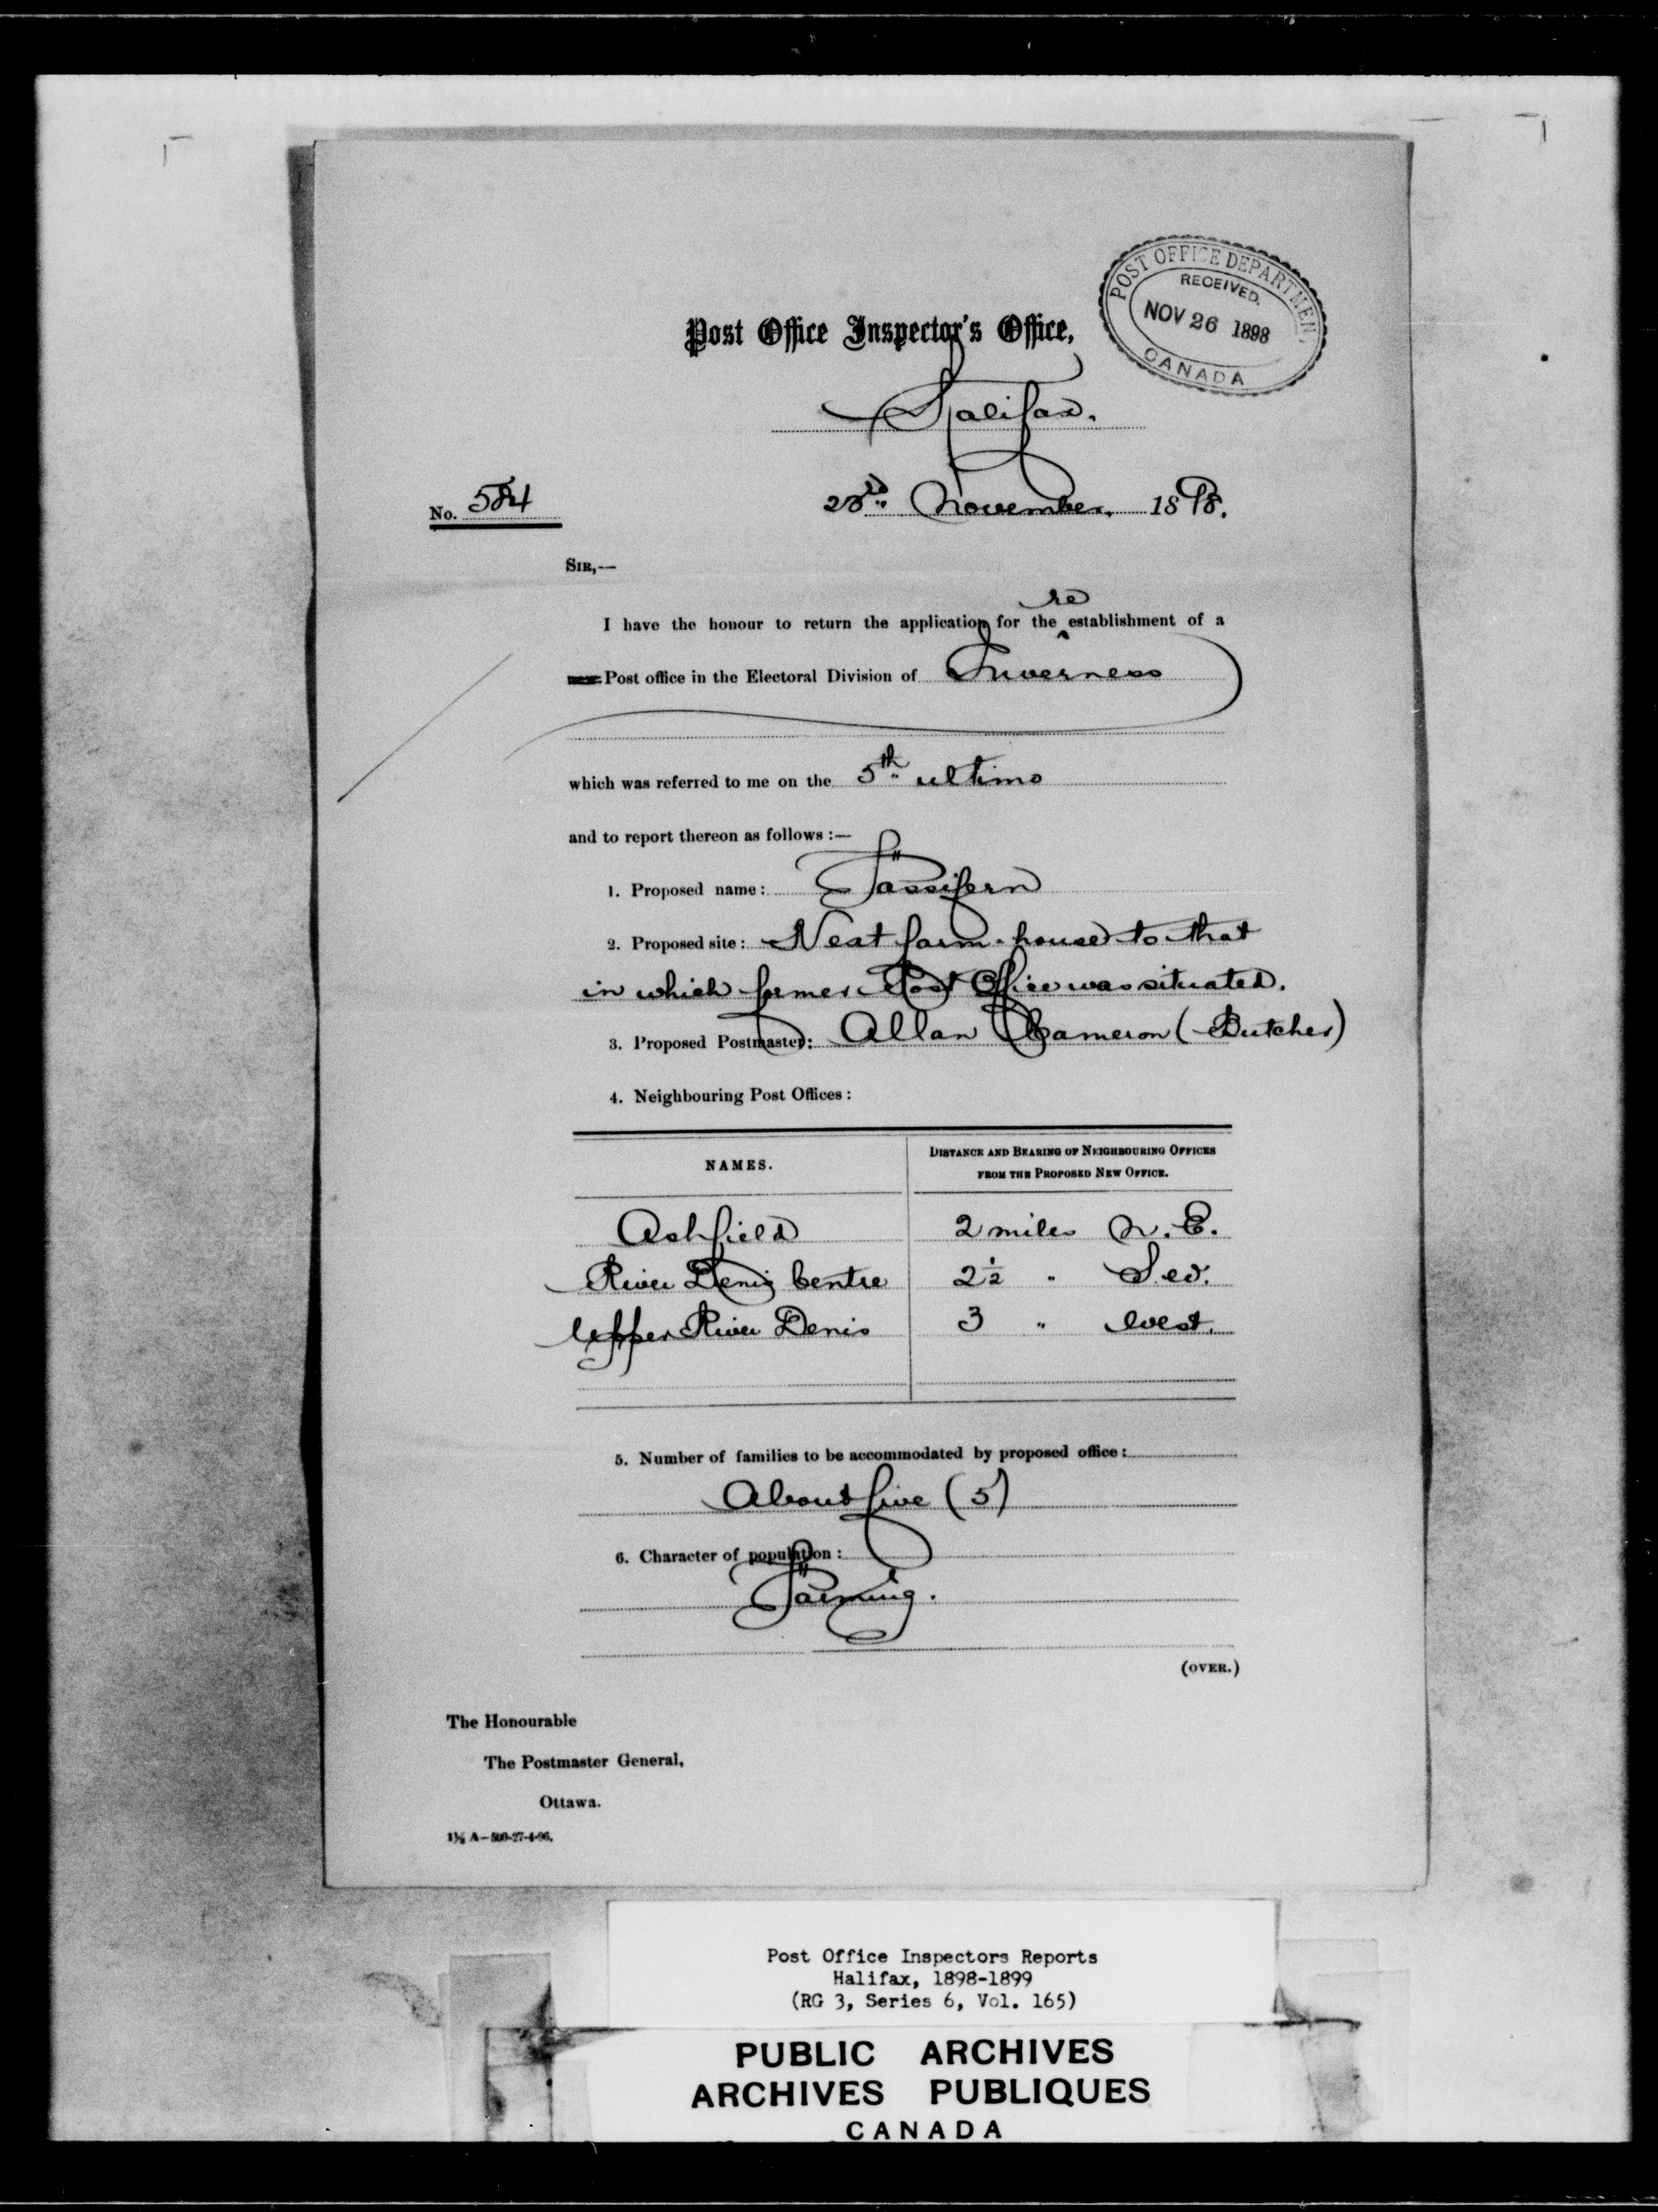 POST OFFICE DEPARTMENT
RECEIVED.
NOV 26 1898
CANADA
Post Office Inspector's Office,
Halifax.
No. 584
23rd. November, 1898.
SIR,—
re
I have the honour to return the application for the ^ establishment of a
new Post office in the Electoral Division of Inverness
which was referred to me on the 5th ultimo
and to report thereon as follows :—
1. Proposed name: Fassifern
2. Proposed site: Next farm-house to that
in which former Post Office was situated.
3. Proposed Postmaster: Allan Cameron (Butcher)
4. Neighbouring Post Offices :
NAMES.
DISTANCE AND BEARING OF NEIGHBOURING OFFICES
FROM THE PROPOSED NEW OFFICE.
Ashfield 2 miles N. E.
River Denis Centre 2½ " S.W.
Upper River Denis 3 " West.
5. Number of families to be accommodated by proposed office :
About five (5)
6. Character of population :
Farming.
(OVER.)
The Honourable
The Postmaster General,
Ottawa.
1½ A–500-27-4-96.
Post Office Inspectors Reports
Halifax, 1898-1899
(RG 3, Series 6, Vol. 165)
PUBLIC ARCHIVES
ARCHIVES PUBLIQUES
CANADA